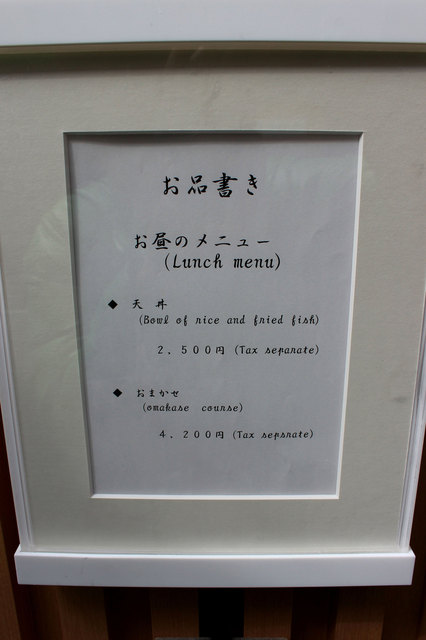 お品書き
お昼のメニュー
(Lunch menu)
◆ 天丼
(Bowl of rice and fried fish)
2，500円 (Tax separate)
◆ おまかせ
(omakase course)
4，200円 (Tax sepsrate)